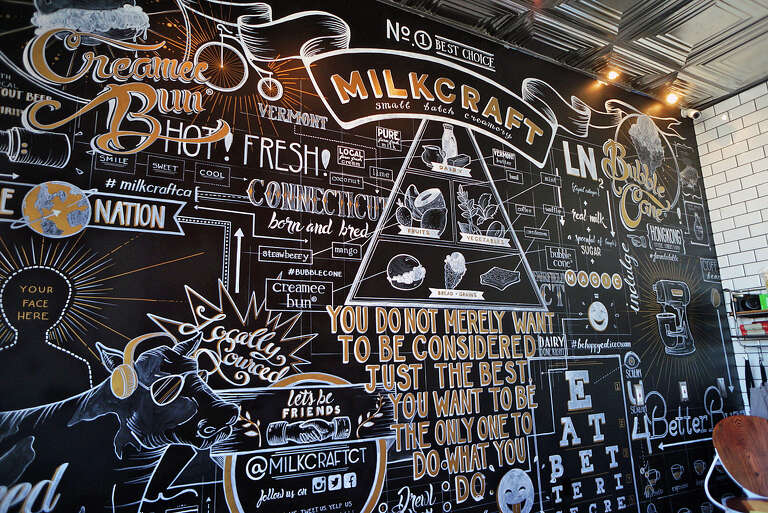 No.1 BEST CHOICE
MILKCRAFT
small batch creamery
Creamee
Bun
VERMONT
HOT! FRESH!
SMILE
SWEET
COOL
# milkcraftca
NATION
YOUR
FACE
HERE
PURE
milk
LOCAL
cream
coconut
lime
CONNECTICUT
born and bred
strawberry
mango
#BUBBLECONE
creamee
bun
DAIRY
FRUITS
VEGETABLES
BREAD + GRAINS
VERMONT
LN2
+
real milk
+
a spoonful of
SUGAR
=
MAGIC
bubble
cone
Bubble
Cone
HONGKONG
indulge
Locally
Sourced
let's be
FRIENDS
@MILKCRAFTCT
follow us on
TWEET US YELP US
YOU DO NOT MERELY WANT
TO BE CONSIDERED
JUST THE BEST
YOU WANT TO BE
THE ONLY ONE TO
DO WHAT YOU
DO.
DAIRY
DONE RIGHT
#behappyeaticecream
E
A T
B E T
T E R I
E C R E
Better